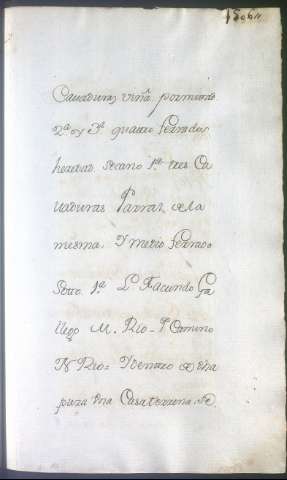 Cauaduras viña por mitad
2ª. y 3ª. quatro ferrados
heredad secano 1ª. tres Ca
uaduras Parral, de la
misma. Y medio ferrado
Soto 1ª. L. Facundo Ga
llego M. Rio = P. Camino
N. Rio = Y dentro de dha
pieza una Casa terrena, de